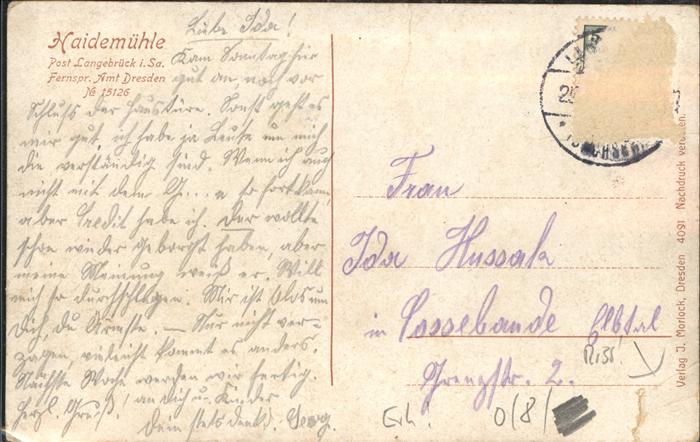 Haidemühle
Post Langebrück i. Sa.
Fernspr. Amt Dresden
№ 15126
Liebe Ida!
Kam Sonntag hier
gut an noch vor
Schluß der Haustüre. Sonst geht es
mir gut, ich habe ja Leute um mich
die verständig sind. Wenn ich auch
nicht mit dem G...e so fort kam,
aber Credit habe ich. Der wollte
schon wieder geborgt haben, aber
meine Meinung weiß er. Will
mich so durchschlagen. Mir ist blos um
Dich, du Ärmste. — Nur nicht ver-
zagen, vieleicht kommt es anders.
Nächste Woche werden wir fertig.
Herzl. Gruß! an Dich u. Kinder
Dein stets denkd. Georg.
Frau
Ida Hussak
in Cossebaude Elbtal
Grenzstr. 2.
Riss!
Erh!
0/8/
Verlag J. Morlock, Dresden 4091 Nachdruck verboten.